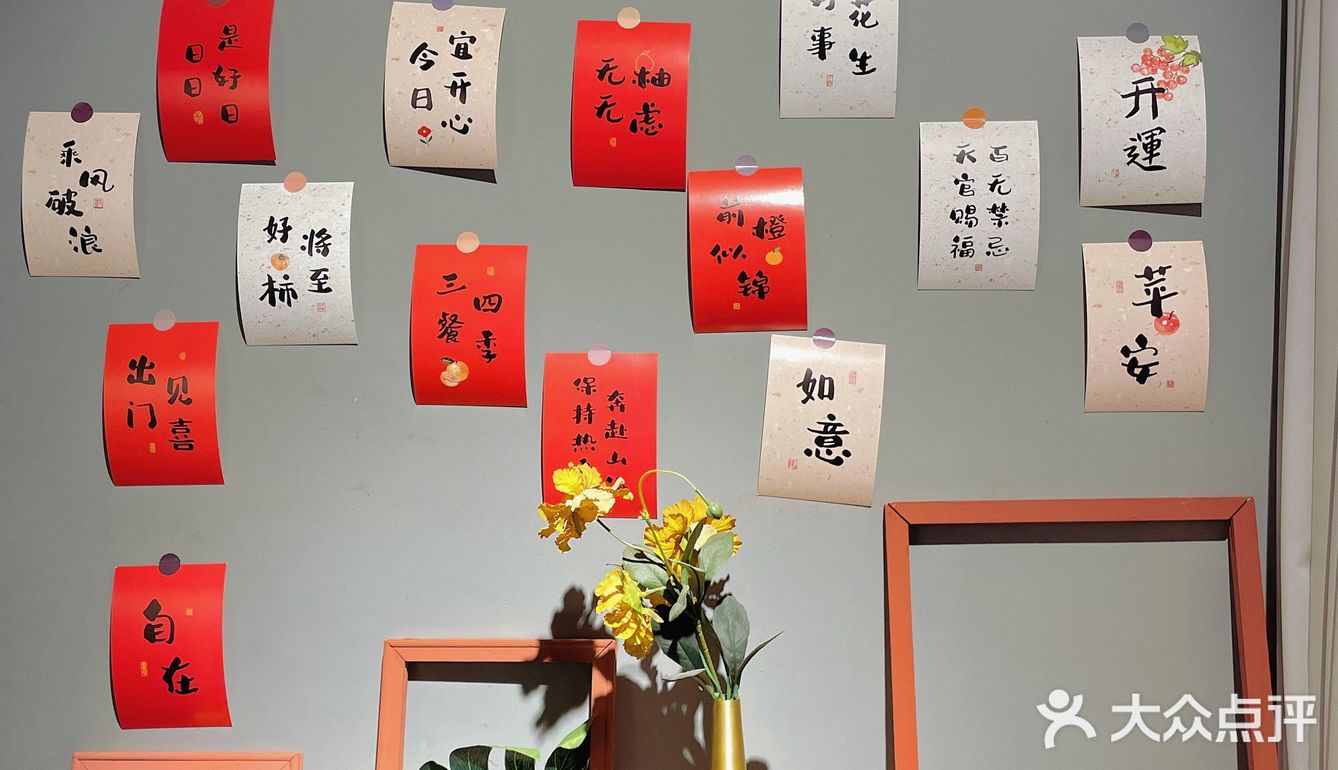 日日
是好日
今日
宜开心
无柚
无虑
好事
花生
开運
乘风
破浪
好柿
将至
三餐
四季
前橙
似锦
天官赐福
百无禁忌
苹安
出门
见喜
保持热
奔赴山
如意
自在
大众点评